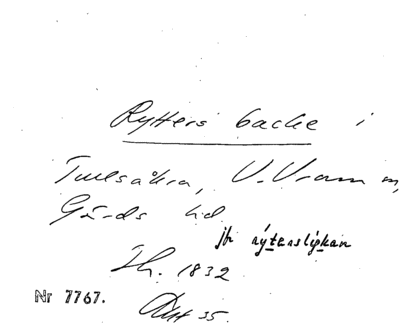 Rytters backe i
Tullsåkra, V. Vram sn,
Gärds hd
jfr rýterslýkan
Lh. 1832
Nr 7767.
35.